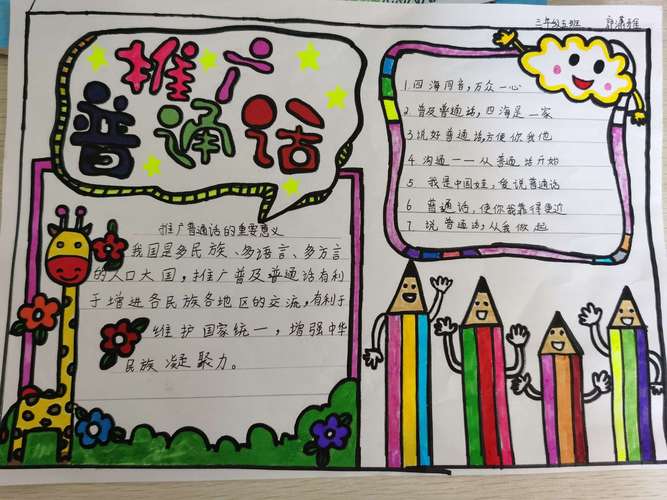 三年级五班 郭潇雅
推广
普通话
推广普通话的重要意义
我国是多民族、多语言、多方言
的人口大国,推广普及普通话有利
于增进各民族各地区的交流,有利于
维护国家统一,增强中华
民族凝聚力。
1 四海同音,万众一心
2 普及普通话,四海是一家
3 说好普通话,方便你我他
4 沟通——从普通话开始
5 我是中国娃,爱说普通话
6 普通话,使你我靠得更近
7 说普通话,从我做起